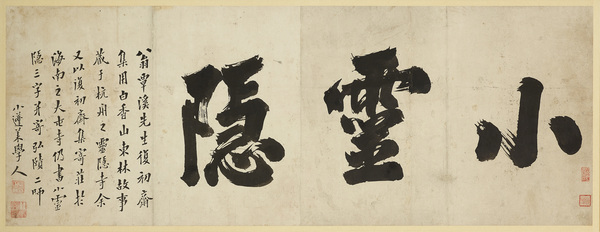 小靈隱
翁覃溪先生復初齋
集用白香山東林故事
藏于杭州之靈隱寺余
又以復初齋集寄於
海南之大士寺仍書小靈
隱三字并寄弘賾二師
小蓬萊學人